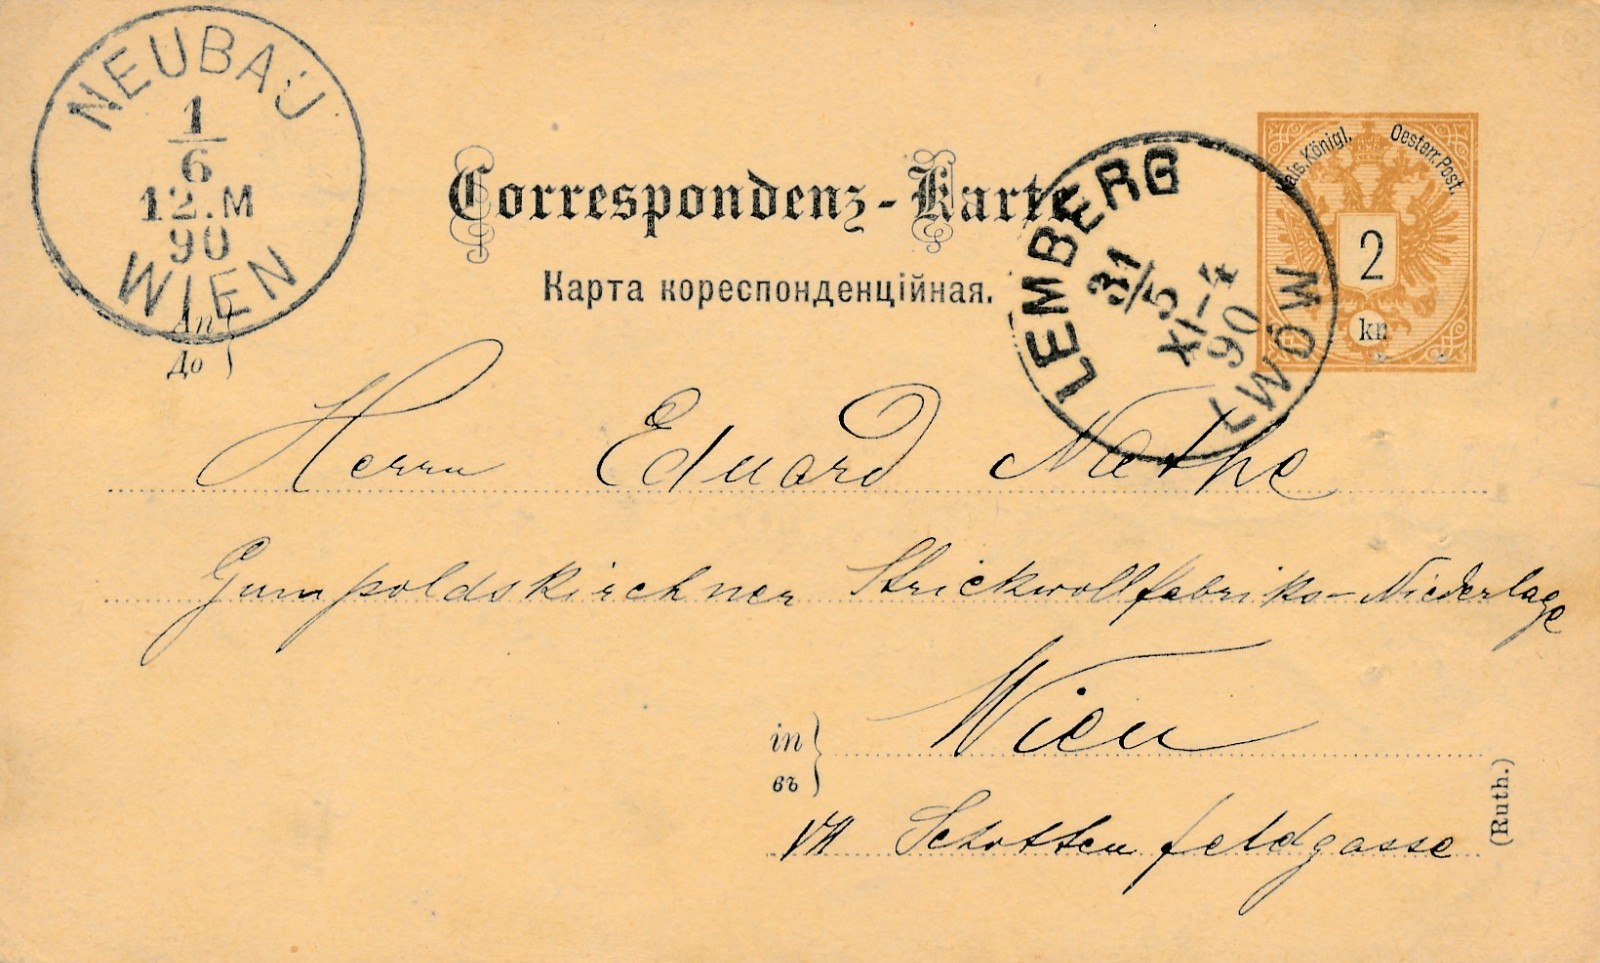 NEUBAU
1
6
12.M
90
WIEN
Correspondenz-Karte
Карта кореспонденційная.
LEMBERG
31/5
XI-4
90
LWÓW
Kais.Königl. Oesterr.Post.
2
kr
An
До
Herrn Eduard Nethe
Gumpoldskirchner Strickwollfabriks-Niederlage
in
въ
Wien
VII Schottenfeldgasse
(Ruth.)